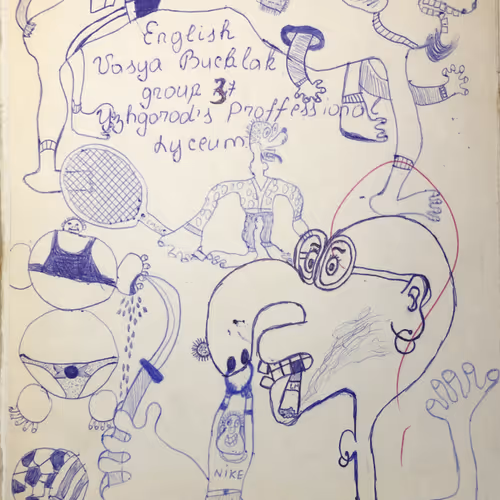 English
Vasya Bucklak
group 37
Uzhgorod's Proffessional
Lyceum
NIKE